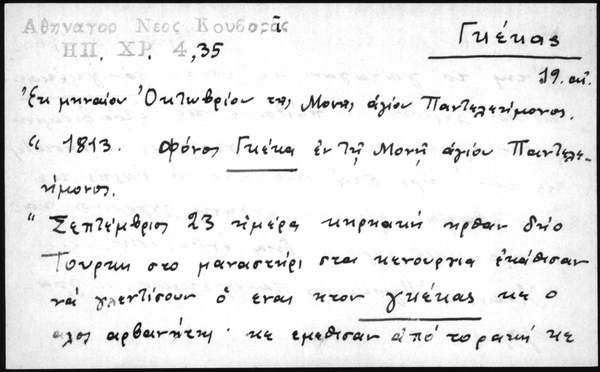 Αθηναγορ Νεος Κουβαρᾶς
ΗΠ. ΧΡ. 4,35
Γκέκας
19. αἰ.
Ἐκ μηναίου Ὀκτωβρίου της Μονης ἁγίου Παντελεήμονος.
" 1813. Φόνος Γκέκα ἐν τῇ Μονῇ ἁγίου Παντελε-
ήμονος.
" Σεπτέμβριος 23 ἡμέρα κηρηακή ηρθαν δηο
Τουρκη στο μαναστήρι στα κενουργια ἐκάθισαν
νά γλεντίσουν ὁ ενας ητον γκέκας κε ο
αλος αρβανήτης· κε εμεθισαν ἀπό το ρακή κε